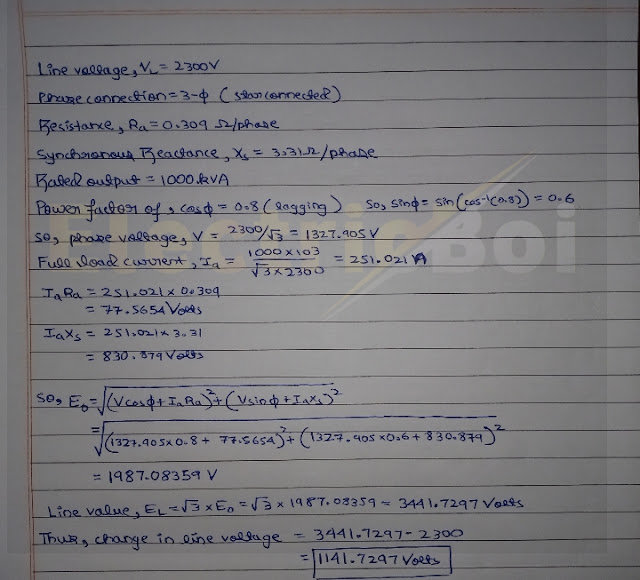 Line voltage, V_L = 2300V
Phase connection = 3-ф (star connected)
Resistance, Ra = 0.309 Ω/phase
Synchronous Reactance, Xs = 3.31Ω/phase
Rated output = 1000 kVA
Power factor of, cosф = 0.8 (lagging) So, sinф = sin(cos-1(0.8)) = 0.6
So, phase voltage, V = 2300/√3 = 1327.905 V
Full load current, Ia = 1000×103 / √3×2300 = 251.021 A
IaRa = 251.021×0.309
= 77.5654 Volts
IaXs = 251.021×3.31
= 830.879 Volts
So, Eo = √(Vcosф+IaRa)²+(Vsinф+IaXs)²
= √(1327.905×0.8+ 77.5654)²+(1327.905×0.6+830.879)²
= 1987.08359 V
Line value, EL = √3×Eo = √3×1987.08359 = 3441.7297 Volts
Thus, change in line voltage = 3441.7297-2300
= 1141.7297 Volts
ElectricBoi